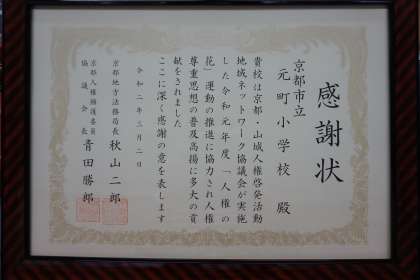 感謝状
京都市立
元町小学校 殿
貴校は京都・山城人権啓発活動
地域ネットワーク協議会が実施
した令和元年度「人権の
花」運動の推進に協力され人権
尊重思想の普及高揚に多大の貢
献をされました
ここに深く感謝の意を表します
令和二年三月二日
京都地方法務局長 秋山二郎
京都人権擁護委員
協議会長 青田勝郎